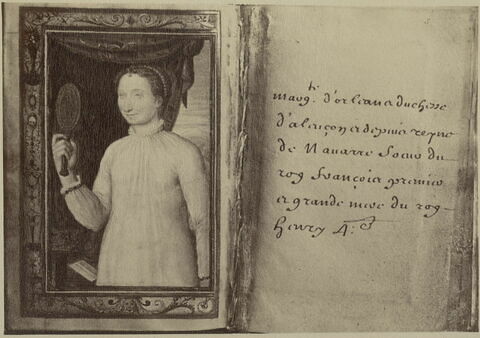 marg.te d'orleans duchesse
d'alençon et depuis reyne
de Navarre Soeur du
roy françois premier
et grande mere du roy
henry 4.e